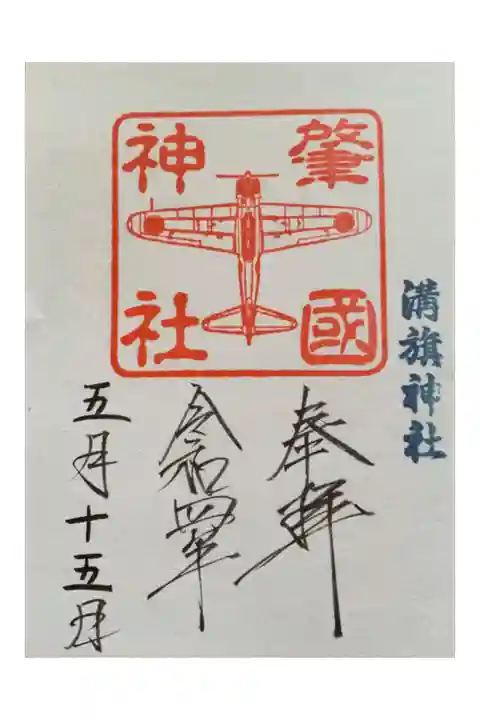 肇國
神社
溝旗神社
奉拝
令和四年
五月十五日